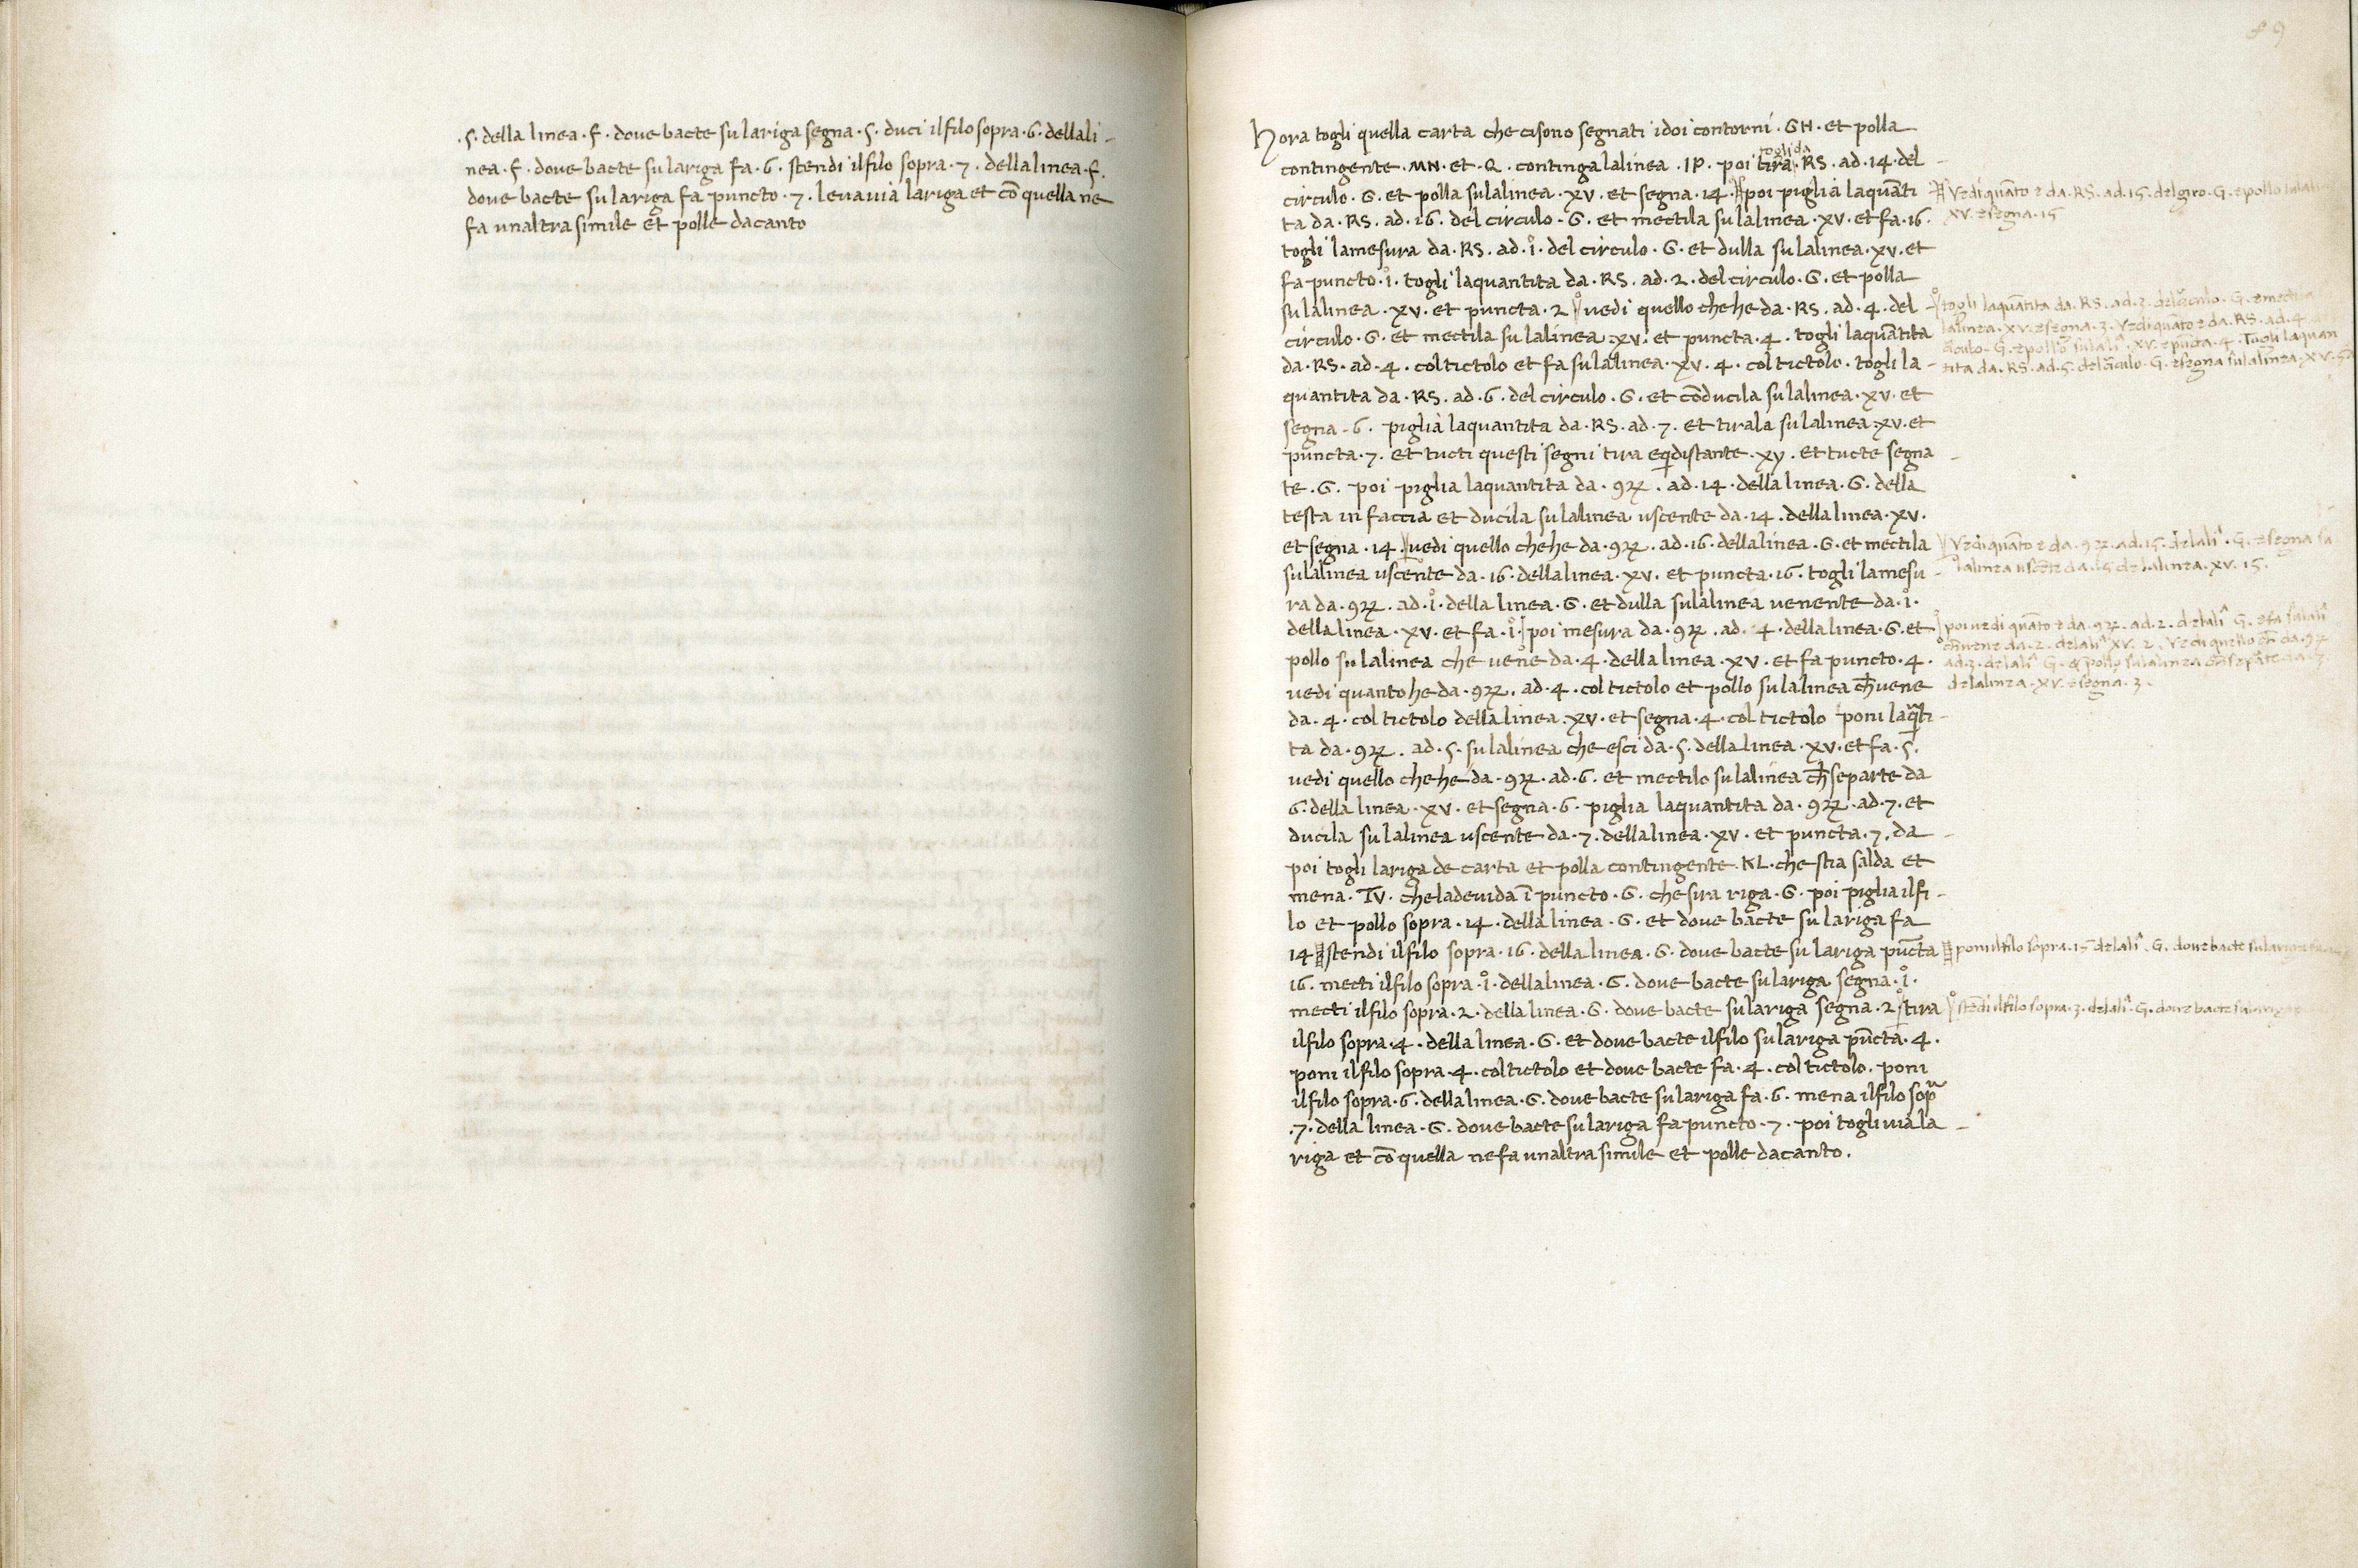 .5. della linea .f. dove bacte su la riga segna .5. duci il filo sopra .6. della li-
nea .f. dove bacte su la riga fa .6. stendi il filo sopra .7. della linea .f.
dove bacte su la riga fa puncto .7. leva via la riga et cō quella ne
fa unaltra simile et polle da canto
89
Hora togli quella carta che ci sono segnati i doi contorni .GH. et polla
togli da
contingente .MN. et .Q. continga la linea .IP. poi tira .RS. ad .14. del
circulo .G. et polla su la linea .XV. et segna .14. poi piglia la quāti
ta da .RS. ad .16. del circulo .G. et mectila su la linea .XV. et fa .16.
togli la mesura da .RS. ad .i°. del circulo .G. et dulla su la linea .XV. et
fa puncto .i°. togli la quantita da .RS. ad .2. del circulo .G. et polla
su la linea .XV. et puncta .2. vedi quello che he da .RS. ad .4. del
circulo .G. et mectila su la linea .XV. et puncta .4. togli la quātita
da .RS. ad .4. col tictolo et fa su la linea .XV. 4. col tictolo. togli la
quantita da .RS. ad .6. del circulo .G. et cōducila su la linea .XV. et
segna .6. piglia la quantita da .RS. ad .7. et tirala su la linea .XV. et
puncta .7. et tucti questi segni tira eqidistante .XY. et tucte segna
te .G. poi piglia la quantita da .9ꝝ. ad .14. della linea .G. della
testa in faccia et ducila su la linea uscente da .14. della linea .XV.
et segna .14. vedi quello che he da .9ꝝ. ad .16. della linea .G. et mectila
su la linea uscente da .16. della linea .XV. et puncta .16. togli la mesu-
ra da .9ꝝ. ad .i°. della linea .G. et dulla su la linea venente da .i°.
della linea .XV. et fa .i°. poi mesura da .9ꝝ. ad .4. della linea .G. et
pollo su la linea che vene da .4. della linea .XV. et fa puncto .4.
vedi quanto he da .9ꝝ. ad .4. col tictolo et pollo su la linea ch̄ vene
da .4. col tictolo della linea .XV. et segna .4. col tictolo poni la q̄ti-
ta da .9ꝝ. ad .5. su la linea che esci da .5. della linea .XV. et fa .5.
vedi quello che he da .9ꝝ. ad .6. et mectilo su la linea ch̄ se parte da
6. della linea .XV. et segna .6. piglia la quantita da .9ꝝ. ad .7. et
ducila su la linea uscente da .7. della linea .XV. et puncta .7. da
poi togli la riga de carta et polla contingente .KL. che stia salda et
mena .TV. che la devida ī puncto .G. che sira riga .G. poi piglia il fi-
lo et pollo sopra .14. della linea .G. et dove bacte su la riga fa
14 stendi il filo sopra .16. della linea .G. dove bacte su la riga pūcta
16. mecti il filo sopra .i°. della linea .G. dove bacte su la riga segna .i°.
mecti il filo sopra .2. della linea .G. dove bacte su la riga segna .2. tira
il filo sopra .4. della linea .G. et dove bacte il filo su la riga pūcta .4.
poni il filo sopra .4. col tictolo et dove bacte fa .4. col tictolo. poni
il filo sopra .6. della linea .G. dove bacte su la riga fa .6. mena il filo sop̄
.7. della linea .G. dove bacte su la riga fa puncto .7. poi togli via la
riga et cō quella ne fa unaltra simile et polle da canto.
Vedi quāto e da .RS. ad .15. del giro .G. e pollo
XV. e segna .15
togli la quātita da .RS. ad .3. del circulo .G. e
la linea .XV. e segna .3. Vedi quāto e da .RS. ad .4.
circulo .G. e pollo su la lī .XV. e pūcta .4. Togli la quan
tita da .RS. ad .5. del circulo .G. e segna su la linea .XV.
Vedi quāto e da .9ꝝ. ad .15. de la lī .G. e segna
la linea uscēte da .15 de la linea .XV. 15.
poi vedi quāto e da .9ꝝ. ad .2. de la lī G. e fa su la lī
ch̄ vene da .2. de la lī XV. 2. Vedi quello ch̄ da .9ꝝ
ad .3. de la lī G. e pollo su la linea ch̄ se parte da .3
de la linea .XV. e segna .3.
poni il filo sopra .15 de la lī .G. dove bacte su la riga
stēdi il filo sopra .3. de la lī .G. dove bacte su la riga